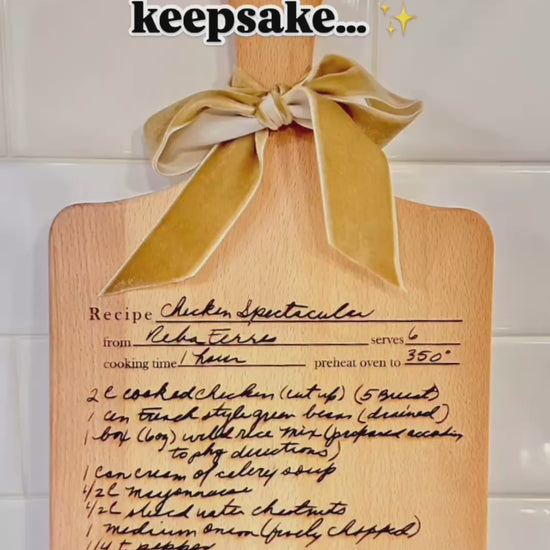 keepsake... ✨
Recipe Chicken Spectacular
from Reba Ferris serves 6
cooking time 1 hour preheat oven to 350°
2 C cooked chicken (cut up) (5 Breast)
1 can French style green beans (drained)
1 box (6oz) wild rice mix (prepared according
to pkg directions)
1 can cream of celery soup
1/2 C mayonnaise
1/2 C sliced water chestnuts
1 medium onion (finely chopped)
1/4 t pepper